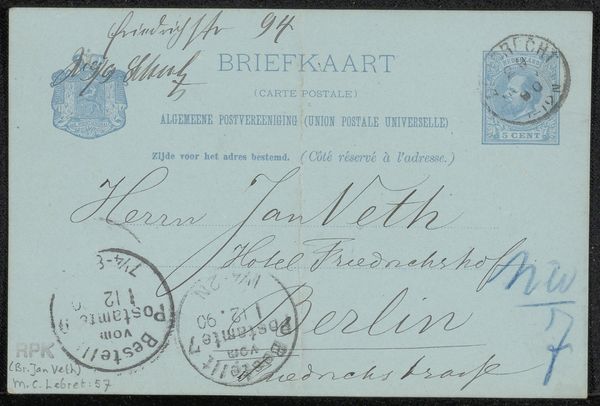 Friedrichstr 94
BRIEFKAART
(CARTE POSTALE)
ALGEMEENE POSTVEREENIGING (UNION POSTALE UNIVERSELLE)
Zijde voor het adres bestemd. (Côté réservé à l'adresse.)
NEDERLAND
5 CENT
Herrn Jan Veth
Hotel Friedrichshof
Berlin
Friedrichstrasse
NW
7
7¼-8
1 12
Bestellt
vom
Postamte
1 12. 90
Bestellt
vom
Postamte 7
RPK
(Br. Jan Veth)
M.C. Lebret: 57